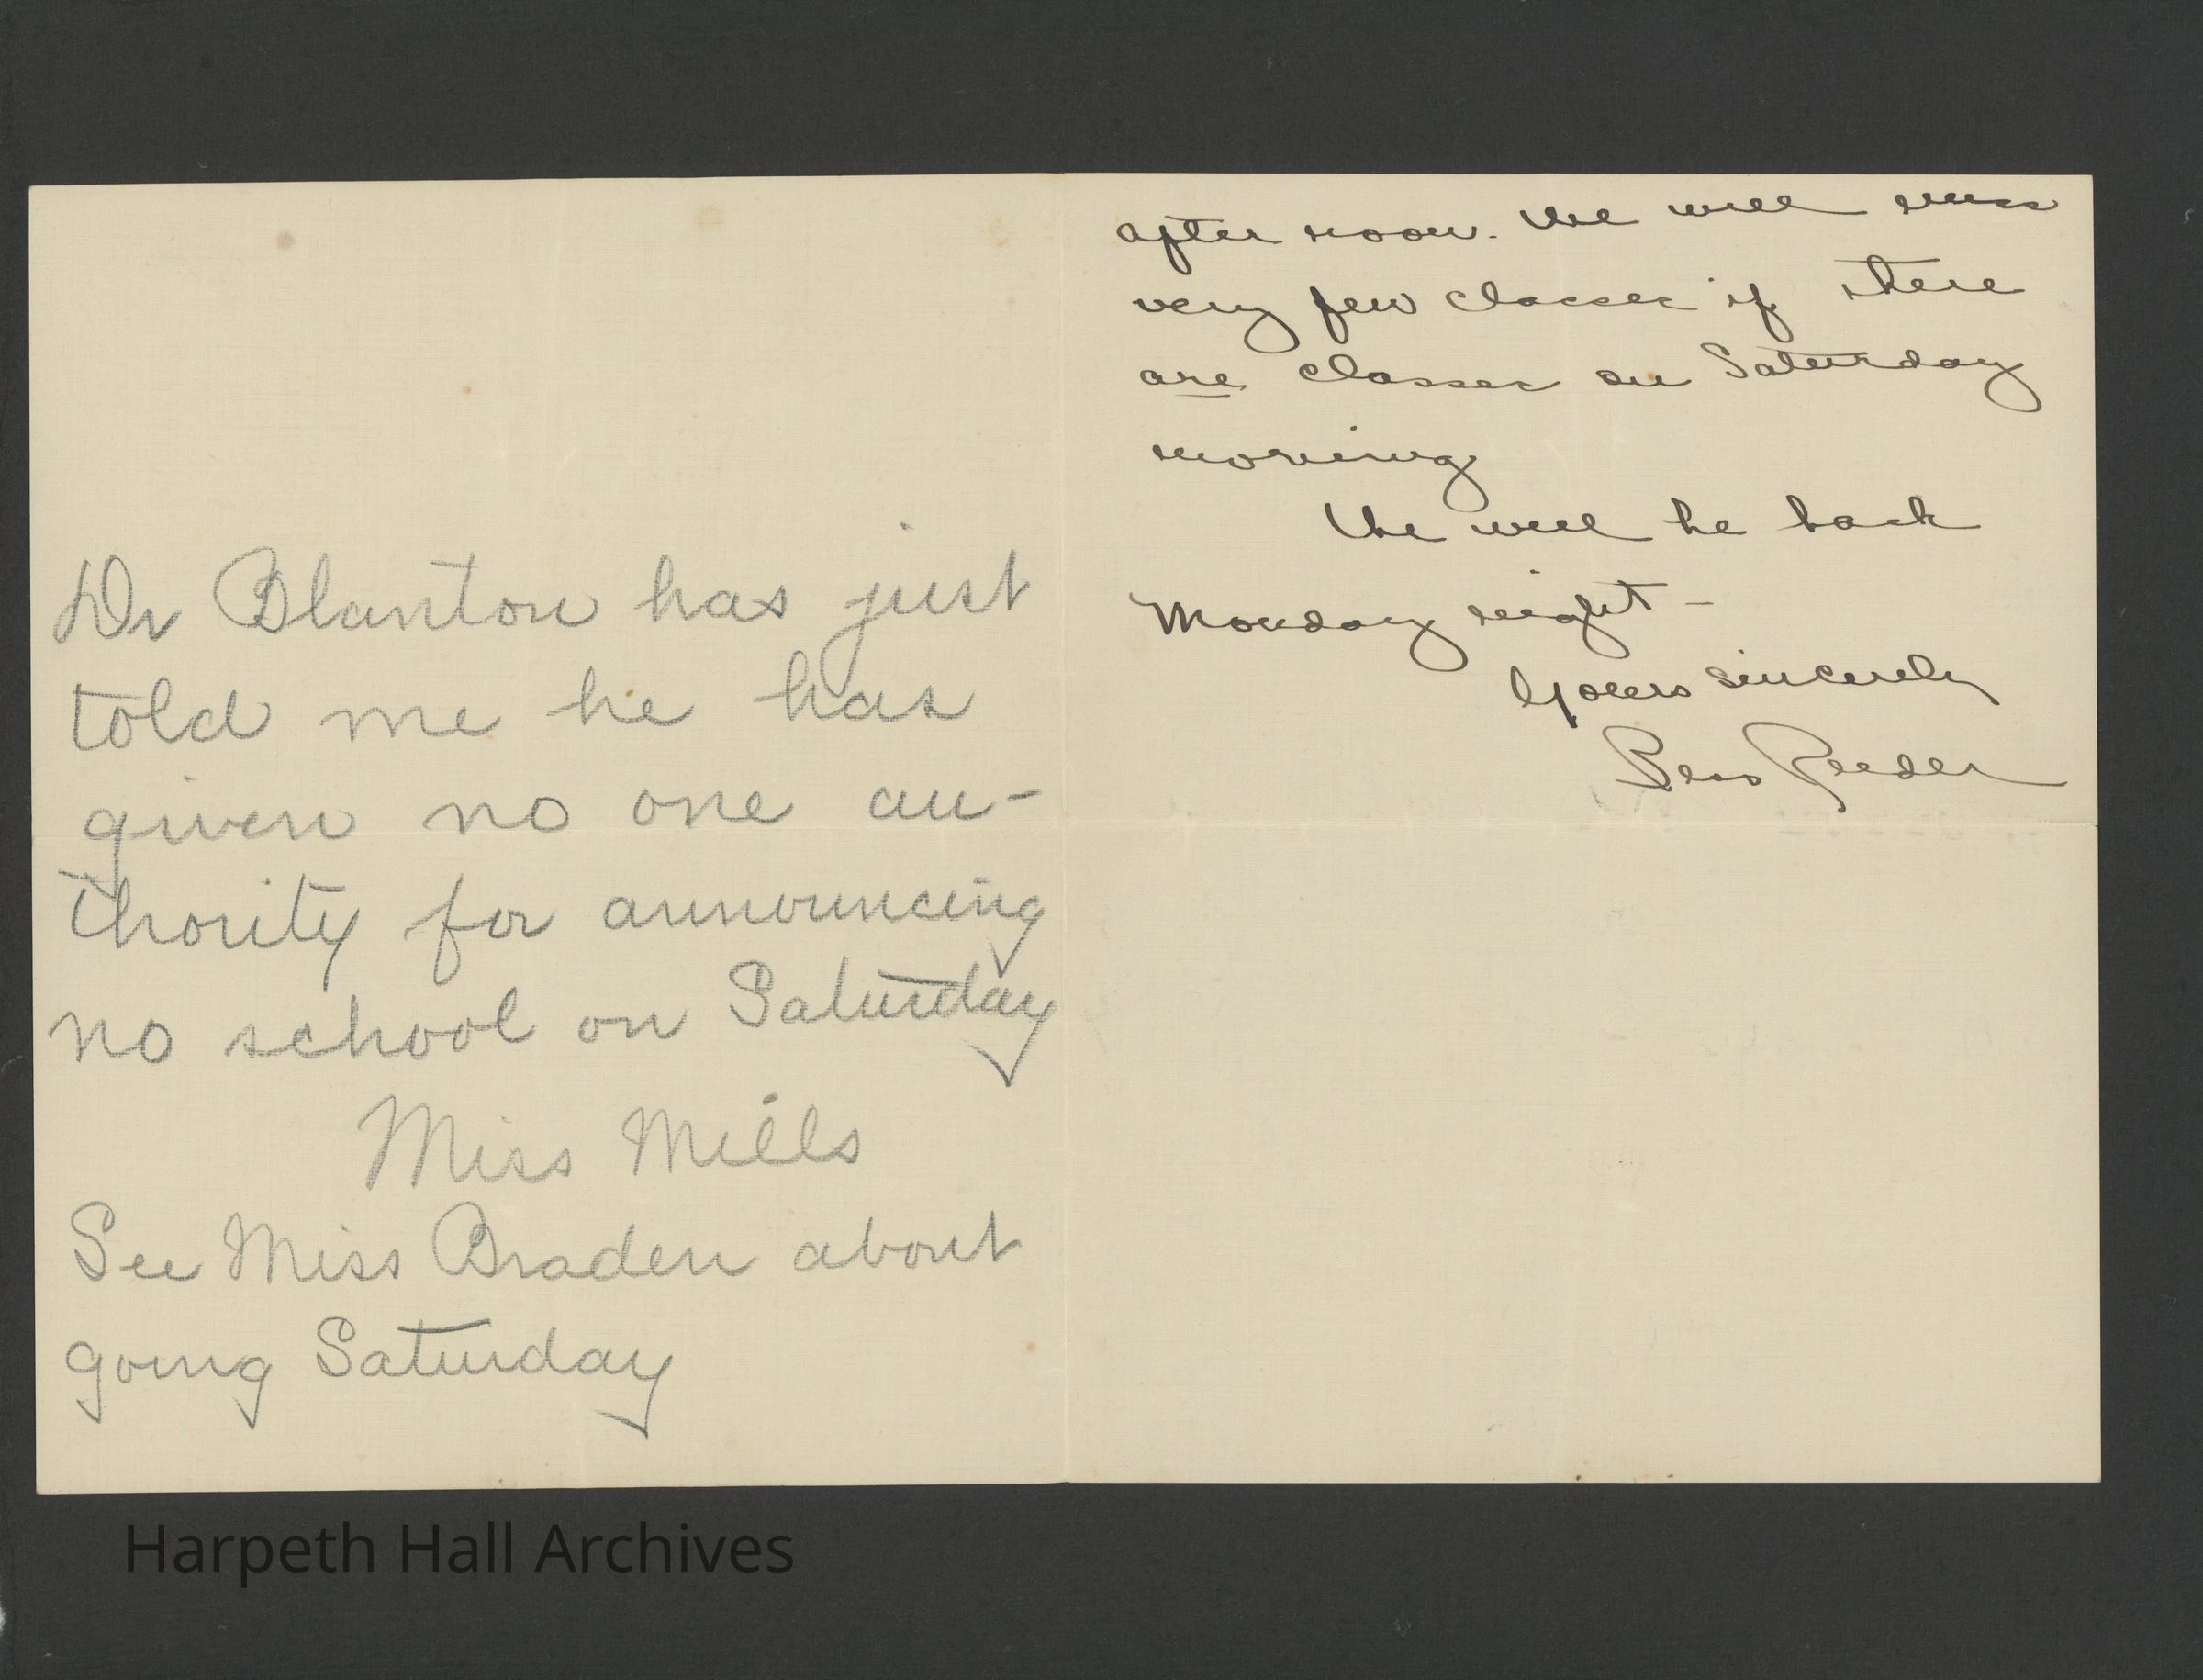 Dr Blanton has just
told me he has
given no one au-
thority for announcing
no school on Saturday
Miss Mills
See Miss Braden about
going Saturday
after noon. We will miss
very few classes if there
are classes on Saturday
morning
We will be back
Monday night -
Yours sincerely
Bess Reeder
Harpeth Hall Archives